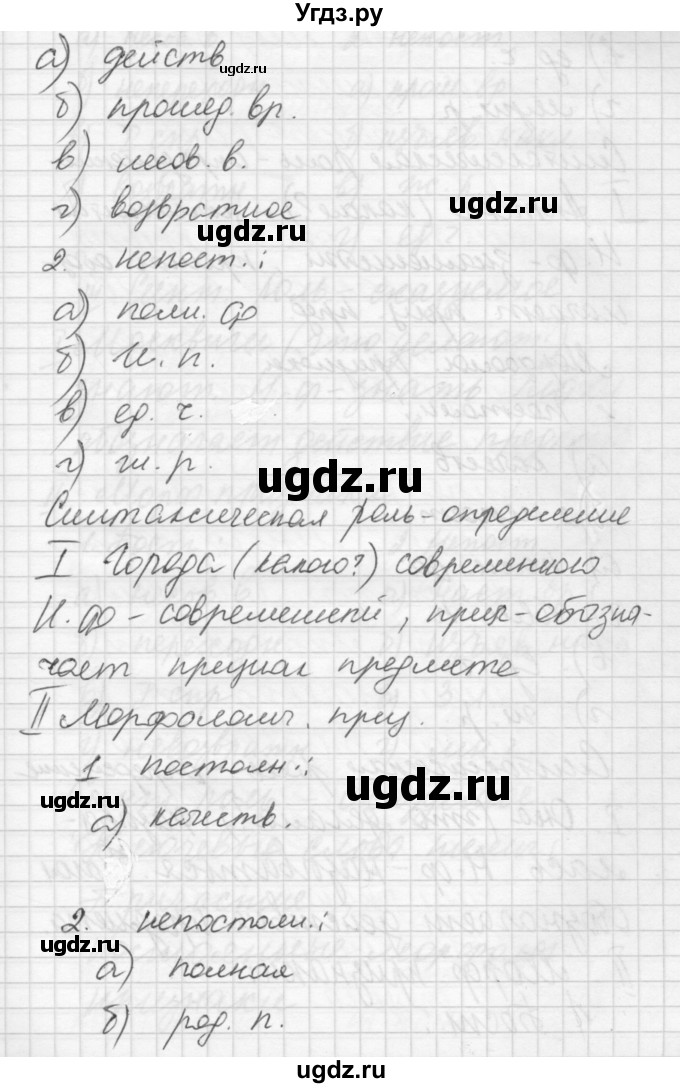 Угдз.ру
а) действ
ugdz.ru
б) прошед. вр.
в) несов. в.
г) возвратное
ugdz.ru
ugdz.ru
2. непост.:
а) полн. ф
б) И. п.
в) ед. ч.
г) ж. р.
ugdz.ru
Синтаксическая роль - определение
I Города (какого?) современного
Н. ф - современный, прил - обозна-
чает признак предмета
II Морфологич. приз.
1 постоян.:
ugdz.ru
ugdz.ru
а) качеств.
2. непостоян.:
ugdz.ru
а) полная
б) род. п.
ugdz.ru